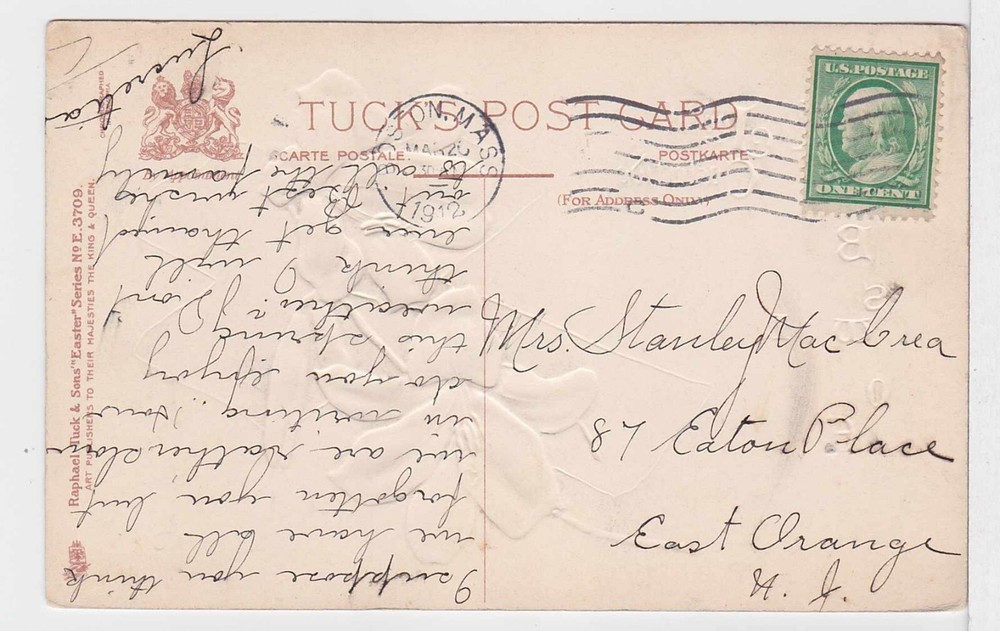 TUCK'S POST CARD
CARTE POSTALE.
POSTKARTE.
(FOR ADDRESS ONLY.)
U.S. POSTAGE
ONE CENT
MASS
MAR 20
1912
Raphael Tuck & Sons' "Easter" Series No E. 3709.
ART PUBLISHERS TO THEIR MAJESTIES THE KING & QUEEN.
I suppose you think
we have all
forgotten you but
we are rather slow
in writing. How
do you enjoy
this spring
weather? I don't
think I will
ever get thawed
out. Best wishes
to all the family
Lucretia
Mrs. Stanley Mac Crea
87 Eaton Place
East Orange
N. J.